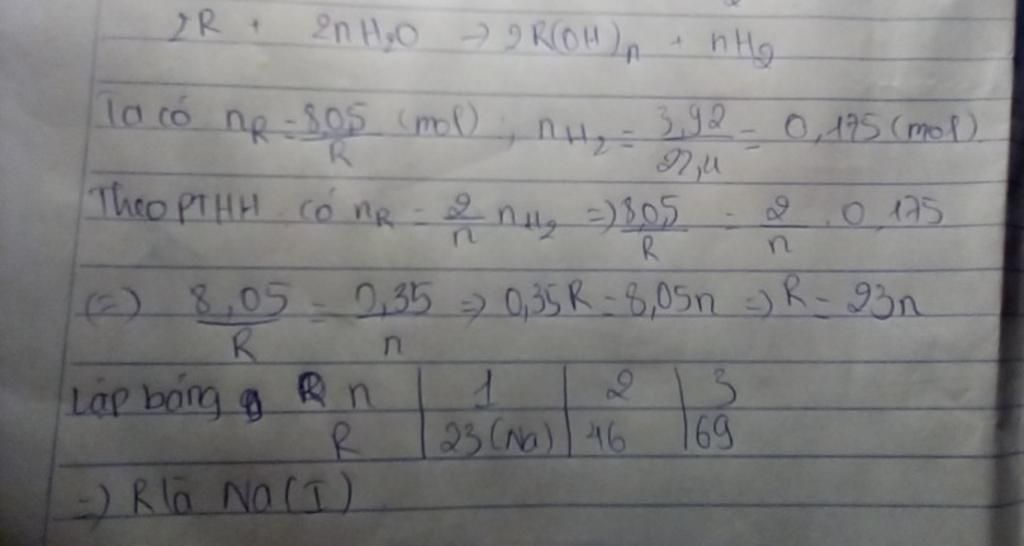 2R + 2nH₂O → 2R(OH)ₙ + nH₂
Ta có nR = 8,05/R (mol), nH₂ = 3,92/22,4 = 0,175 (mol)
Theo PTHH có nR = 2/n nH₂ => 8,05/R = 2/n . 0,175
(=) 8,05/R = 0,35/n => 0,35R = 8,05n => R = 23n
Lập bảng n | 1 | 2 | 3
R | 23 (Na) | 46 | 69
=> R là Na (I)